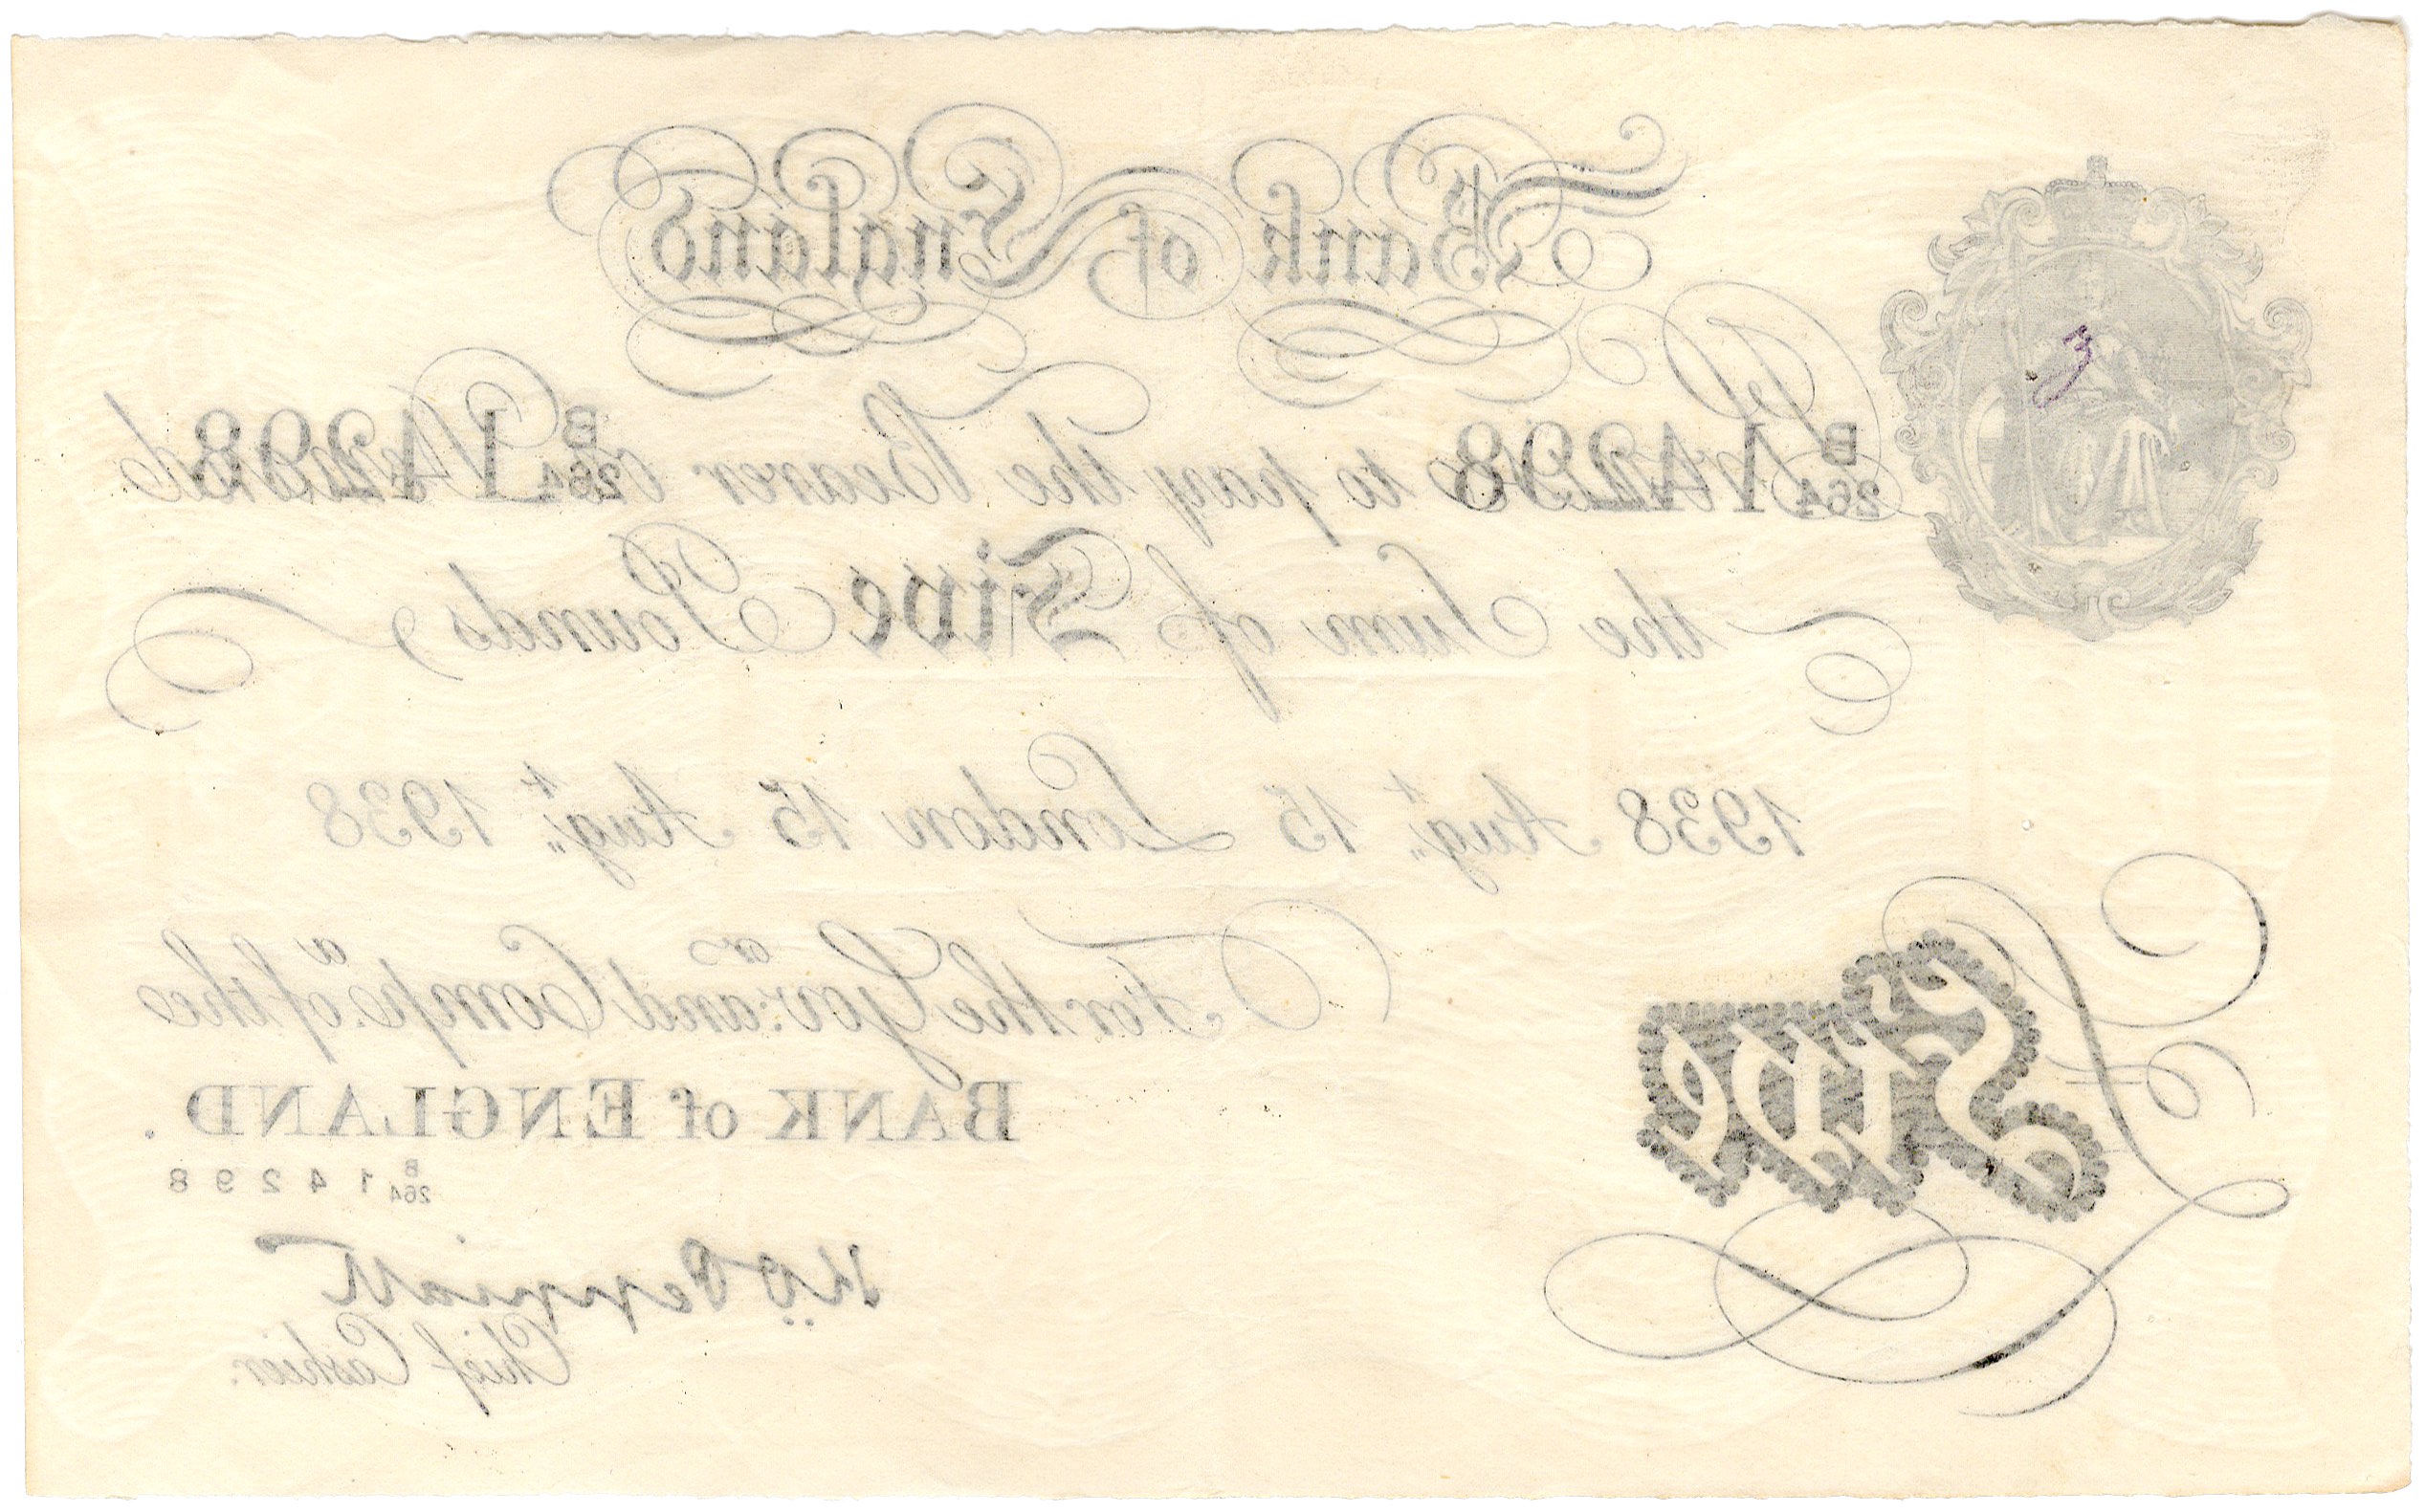 Bank of England
B/264 14298 B/264 14298
I Promise to pay the Bearer on Demand
the Sum of Five Pounds
1938 Augt. 15 London 15 Augt. 1938
For the Govr. and Compa. of the
BANK of ENGLAND.
B/264 14298
K O Peppiatt
Chief Cashier.
£ Five
3